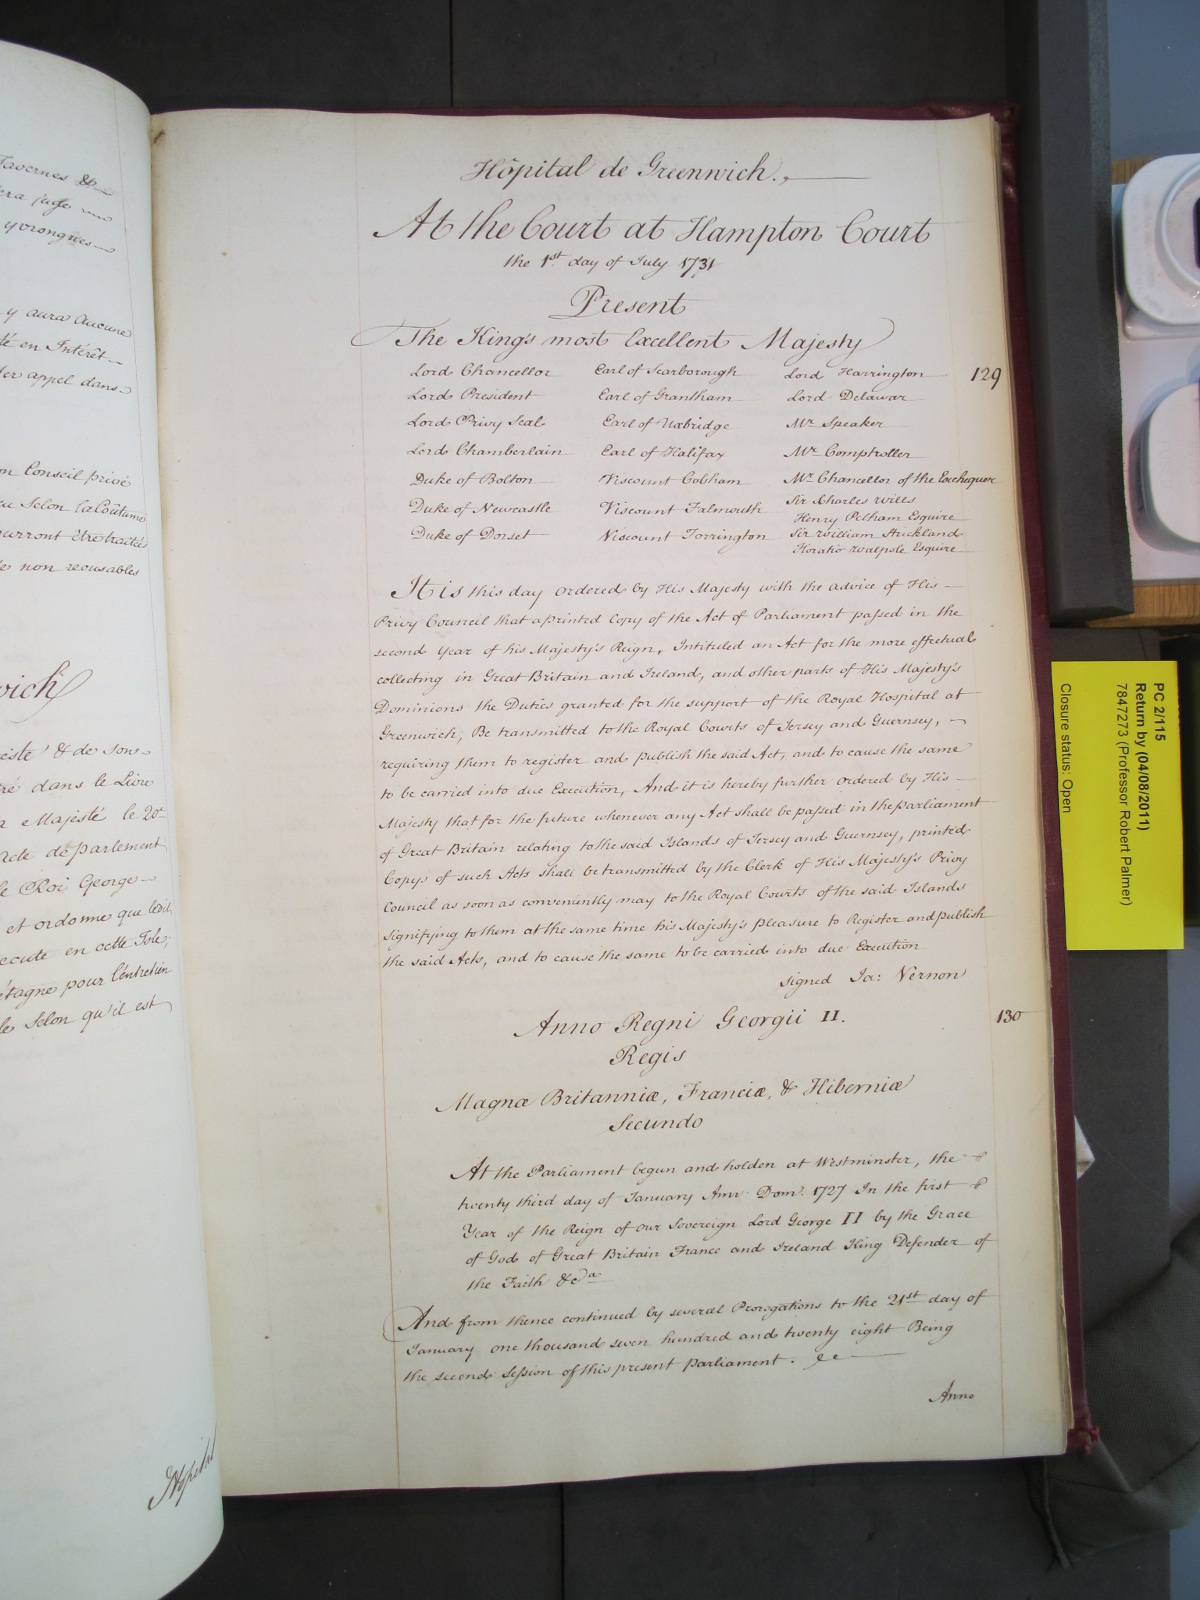 Tavernes &
era juge
yvrongnes
y aura Aucune
té en Intérêt
appel dans
Conseil privé
Selon la Coûtume
pourront être traités
non recusables
wich
& de son
dans le Livre
Majesté le 20e
Acte de parlement
le Roi George
et ordonne que ledit
execute en cette Isle,
etagne pour l'entretien
Selon qu'il est
Hopital
Hôpital de Greenwich.,
At the Court at Hampton Court
the 1st day of July 1731
Present
The King's most Excellent Majesty
Lord Chancellor Earl of Scarborough Lord Harrington 129
Lord President Earl of Grantham Lord Delawar
Lord Privy Seal Earl of Uxbridge Mr Speaker
Lord Chamberlain Earl of Halifax Mr Comptroller
Duke of Bolton Viscount Cobham Mr Chancellor of the Exchequer
Duke of Newcastle Viscount Falmouth Sir Charles Wills
Henry Pelham Esquire
Duke of Dorset Viscount Torrington Sir William Strickland
Horatio Walpole Esquire
It is this day ordered by His Majesty with the advice of His
Privy Council that a printed Copy of the Act of Parliament passed in the
second Year of his Majesty's Reign, Intituled an Act for the more effectual
collecting in Great Britain and Ireland, and other parts of His Majesty's
Dominions the Duties granted for the support of the Royal Hospital at
Greenwich; Be transmitted to the Royal Courts of Jersey and Guernsey,
requiring them to register and publish the said Act, and to cause the same
to be carried into due Execution, And it is hereby further ordered by His
Majesty that for the future whenever any Act shall be passed in the parliament
of Great Britain relating to the said Islands of Jersey and Guernsey, printed
Copys of such Acts shall be transmitted by the Clerk of His Majesty's Privy
Council as soon as conveniently may to the Royal Courts of the said Islands
signifying to them at the same time his Majesty's pleasure to Register and publish
the said Acts, and to cause the same to be carried into due Execution
signed Ja: Vernon
Anno Regni Georgii II. 130
Regis
Magnæ Britanniæ, Franciæ, & Hiberniæ
Secundo
At the Parliament begun and holden at Westminster, the
twenty third day of January Ann. Dom. 1727 In the first
Year of the Reign of our Sovereign Lord George II by the Grace
of God of Great Britain France and Ireland King Defender of
the Faith &ca
And from thence continued by several Prorogations to the 21st day of
January one thousand seven hundred and twenty eight Being
the second Session of this present parliament.
Anno
PC 2/115
Return by (04/08/2011)
7847273 (Professor Robert Palmer)
Closure status: Open